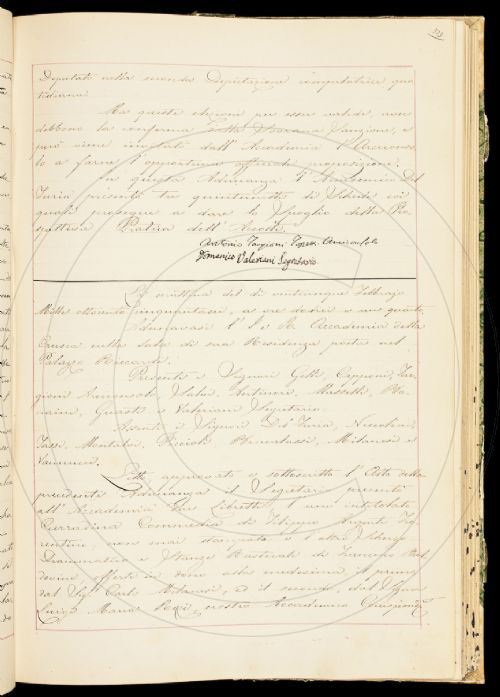 Deputato nella seconda Deputazione compilatrice quo
tidiana.
Ma queste elezioni per esser valide, aven
debbono la conferma della Sovrana Sanzione, e
però viene invitato dall'Accademia l'Arciconso
lo a farne l'opportuna officiale proposizione.
In questa Adunanza l'Accademico Del
Furia presentò tre quinternetti di Schede coi
quali prosegue a dare lo Spoglio della
Pratica dell'
Antonio Targioni Tozzetti Arciconsolo
Domenico Valeriani Segretario
La mattina del dì venticinque Febbrajo
Mille ottocento cinquantasei, a ore dodici e un quarto,
Adunavasi l' I. e R. Accademia della
Crusca nella sala di sua Residenza posta nel
Palazzo Riccardi.
Presenti i Signori Gelli, Capponi, Tar
gioni Arciconsolo, Salvi, Antinori, Masselli,
Guasti e Valeriani Segretario.
Assenti i Signori Del Furia, Niccolini,
Tassi, Montalvi, Milanesi e
Vannucci.
Letto approvato e sottoscritto l'Atto della
precedente Adunanza il Segretario presentò
all'Accademia due Libretti l'uno intitolato
Commedia di Filippo fio
rentino, non mai stampata e l'altro
Drammatico e Stanze Rusticali di
offerti in dono alla medesima il primo
dal Sig. Carlo Milanesi, ed il secondo, dal Signor
Luigi Maria Rezzi nostro Accademico Corrispond.